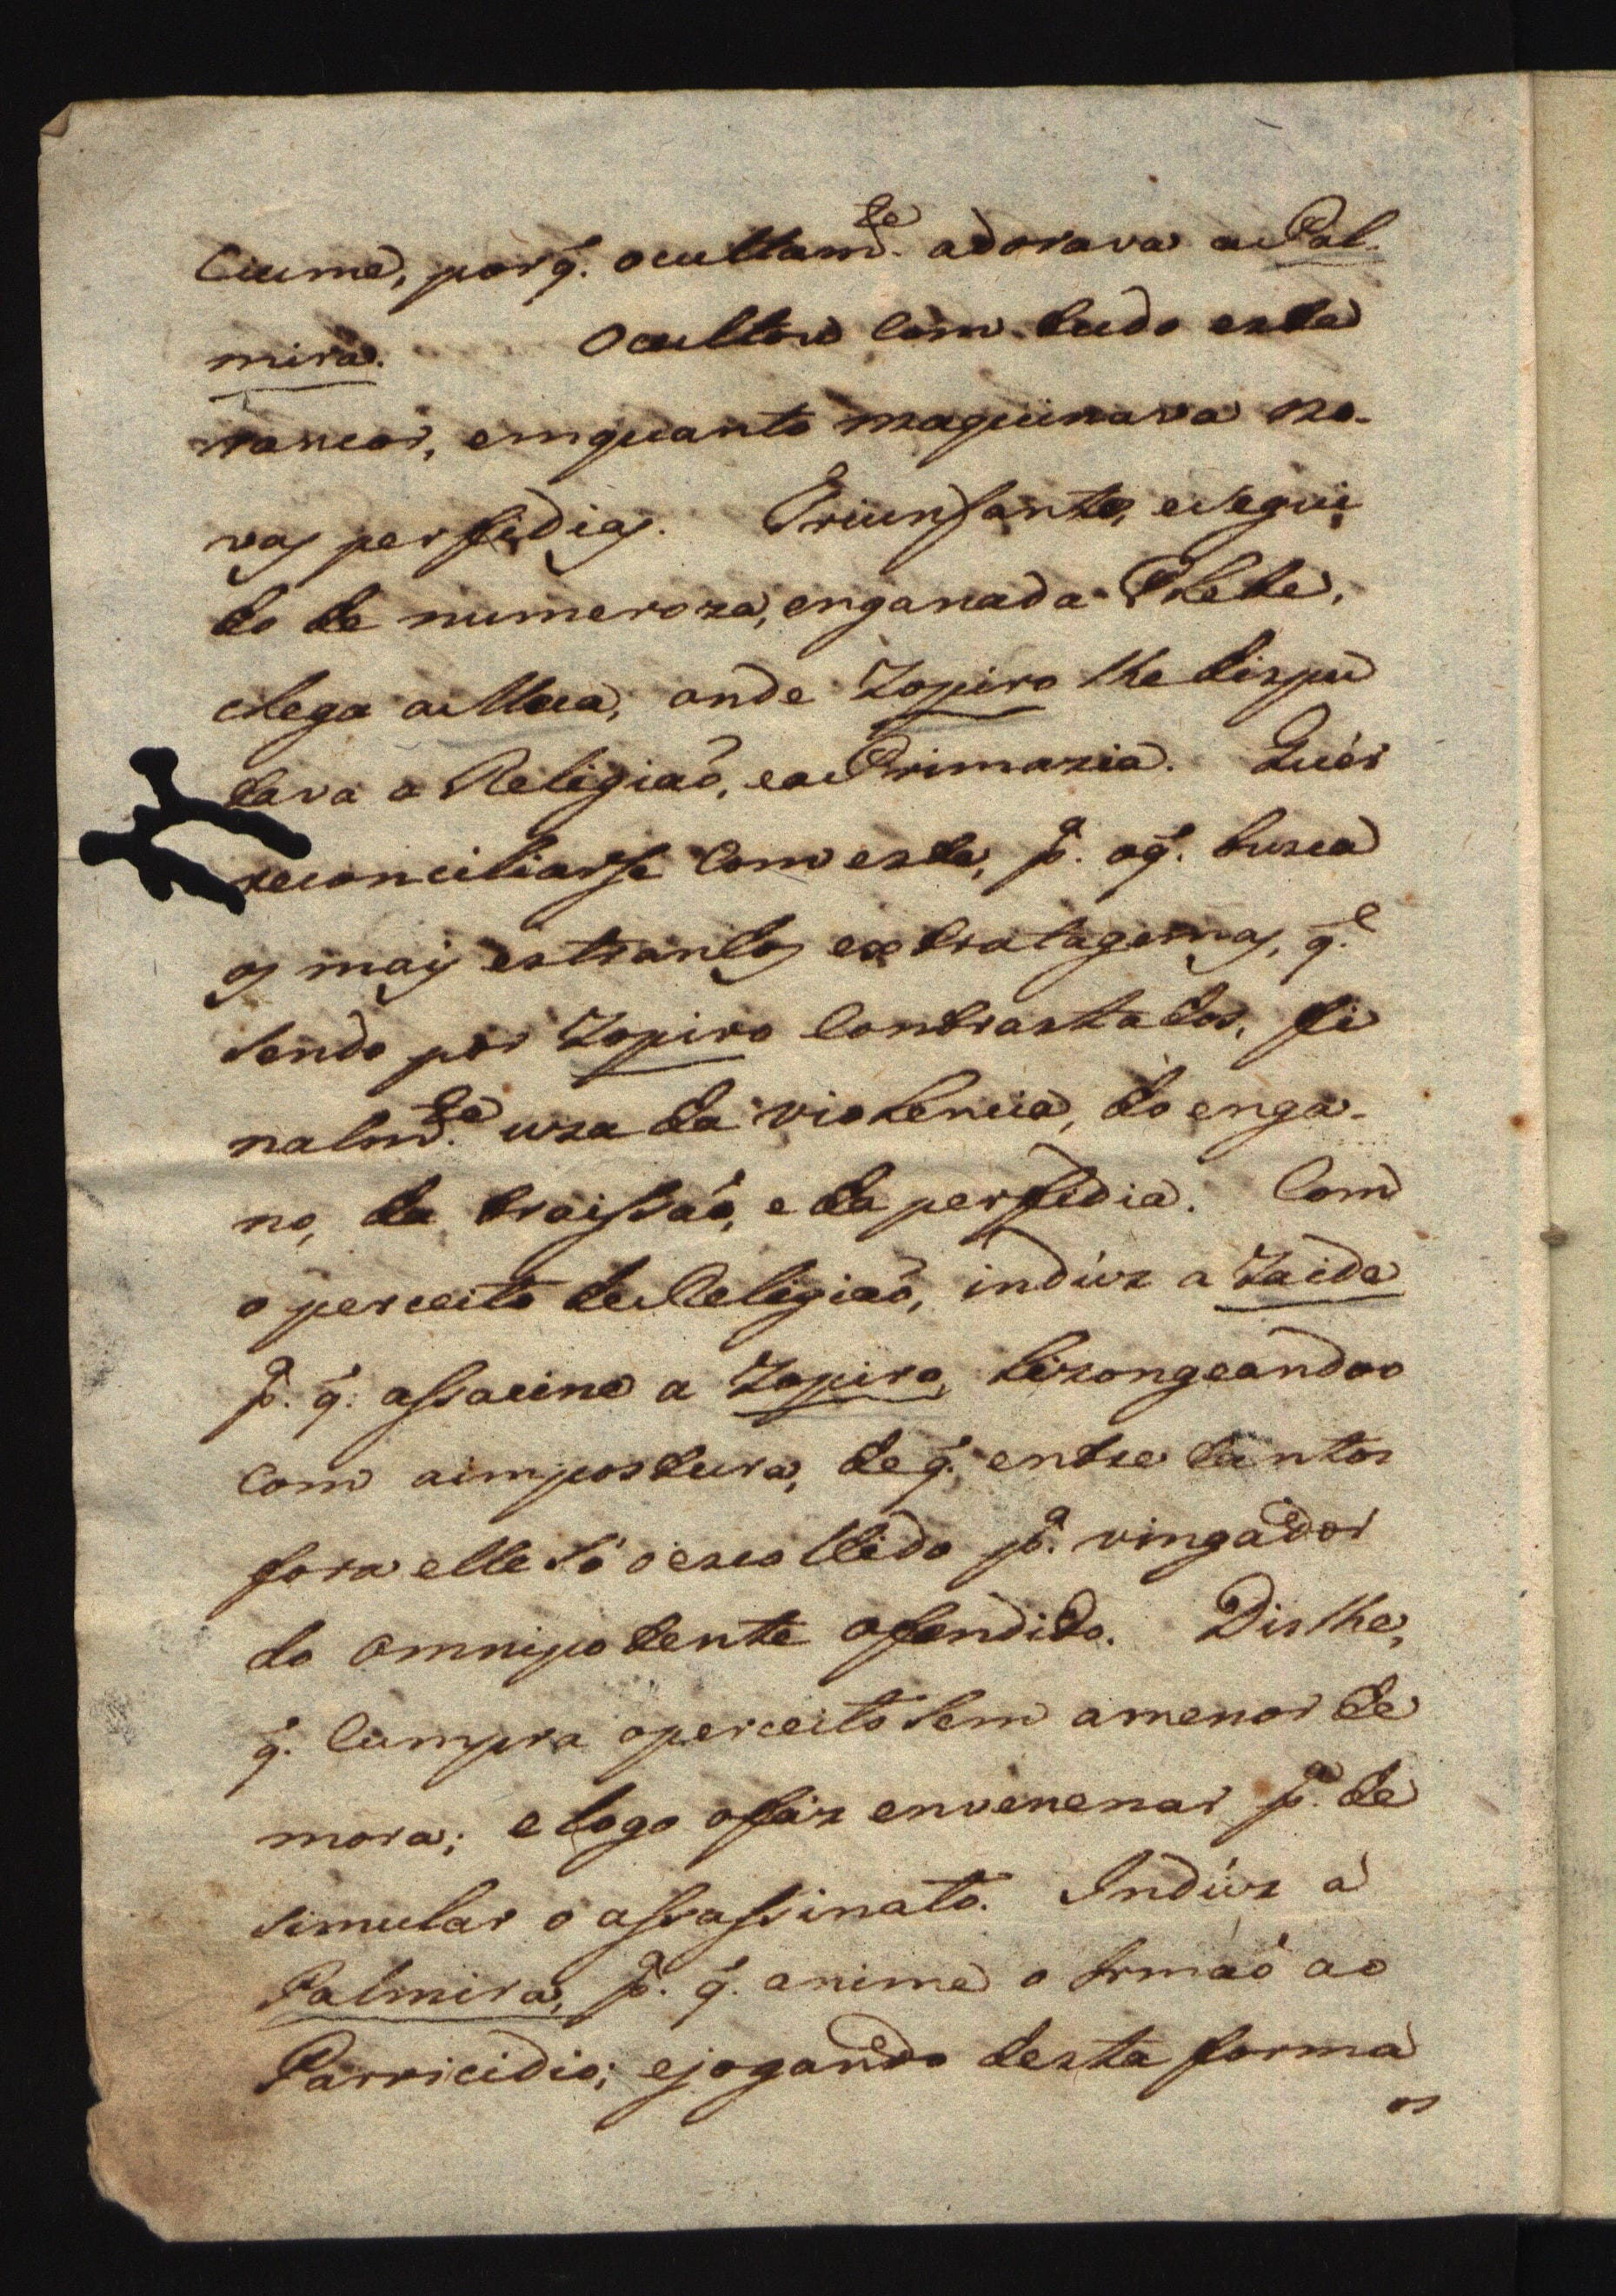 Ciume, porq̃. ocultamᵗᵉ. adorava a Pal-
mira. Ocultou com tudo este
rancor, emquanto maquinava no-
vas perfidias. Triunfante, e segui
do de numeroza, enganada Plebe,
chega a Meca, onde Zopiro lhe dispu
tava a Religiaõ, e a Primazia. Quér
reconciliarse com este, pª. o q̃. busca
os mais estranhos extratagemas, q.ᵉ
sendo por Zopiro contrastados, fi
nalmᵗᵉ. uza da violencia, do enga-
no, da traissaõ, e da perfidia. Com
o perceito de Religiaõ, indûz a Zaide
pª. q̃. assacine a Zopiro, lizongeandoo
com a impostura, de q̃. entre tantos
fora elle só o escolhido pª. vingador
do Omnipotente ofendido. Dislhe,
q̃. cumpra o perceito sem a menor de
mora; e logo o fáz envenenar pª. de
simular o assassinato. Indúz a
Palmira, pª. q̃. anime o Irmaõ ao
Parricidio; e jogando desta forma
os